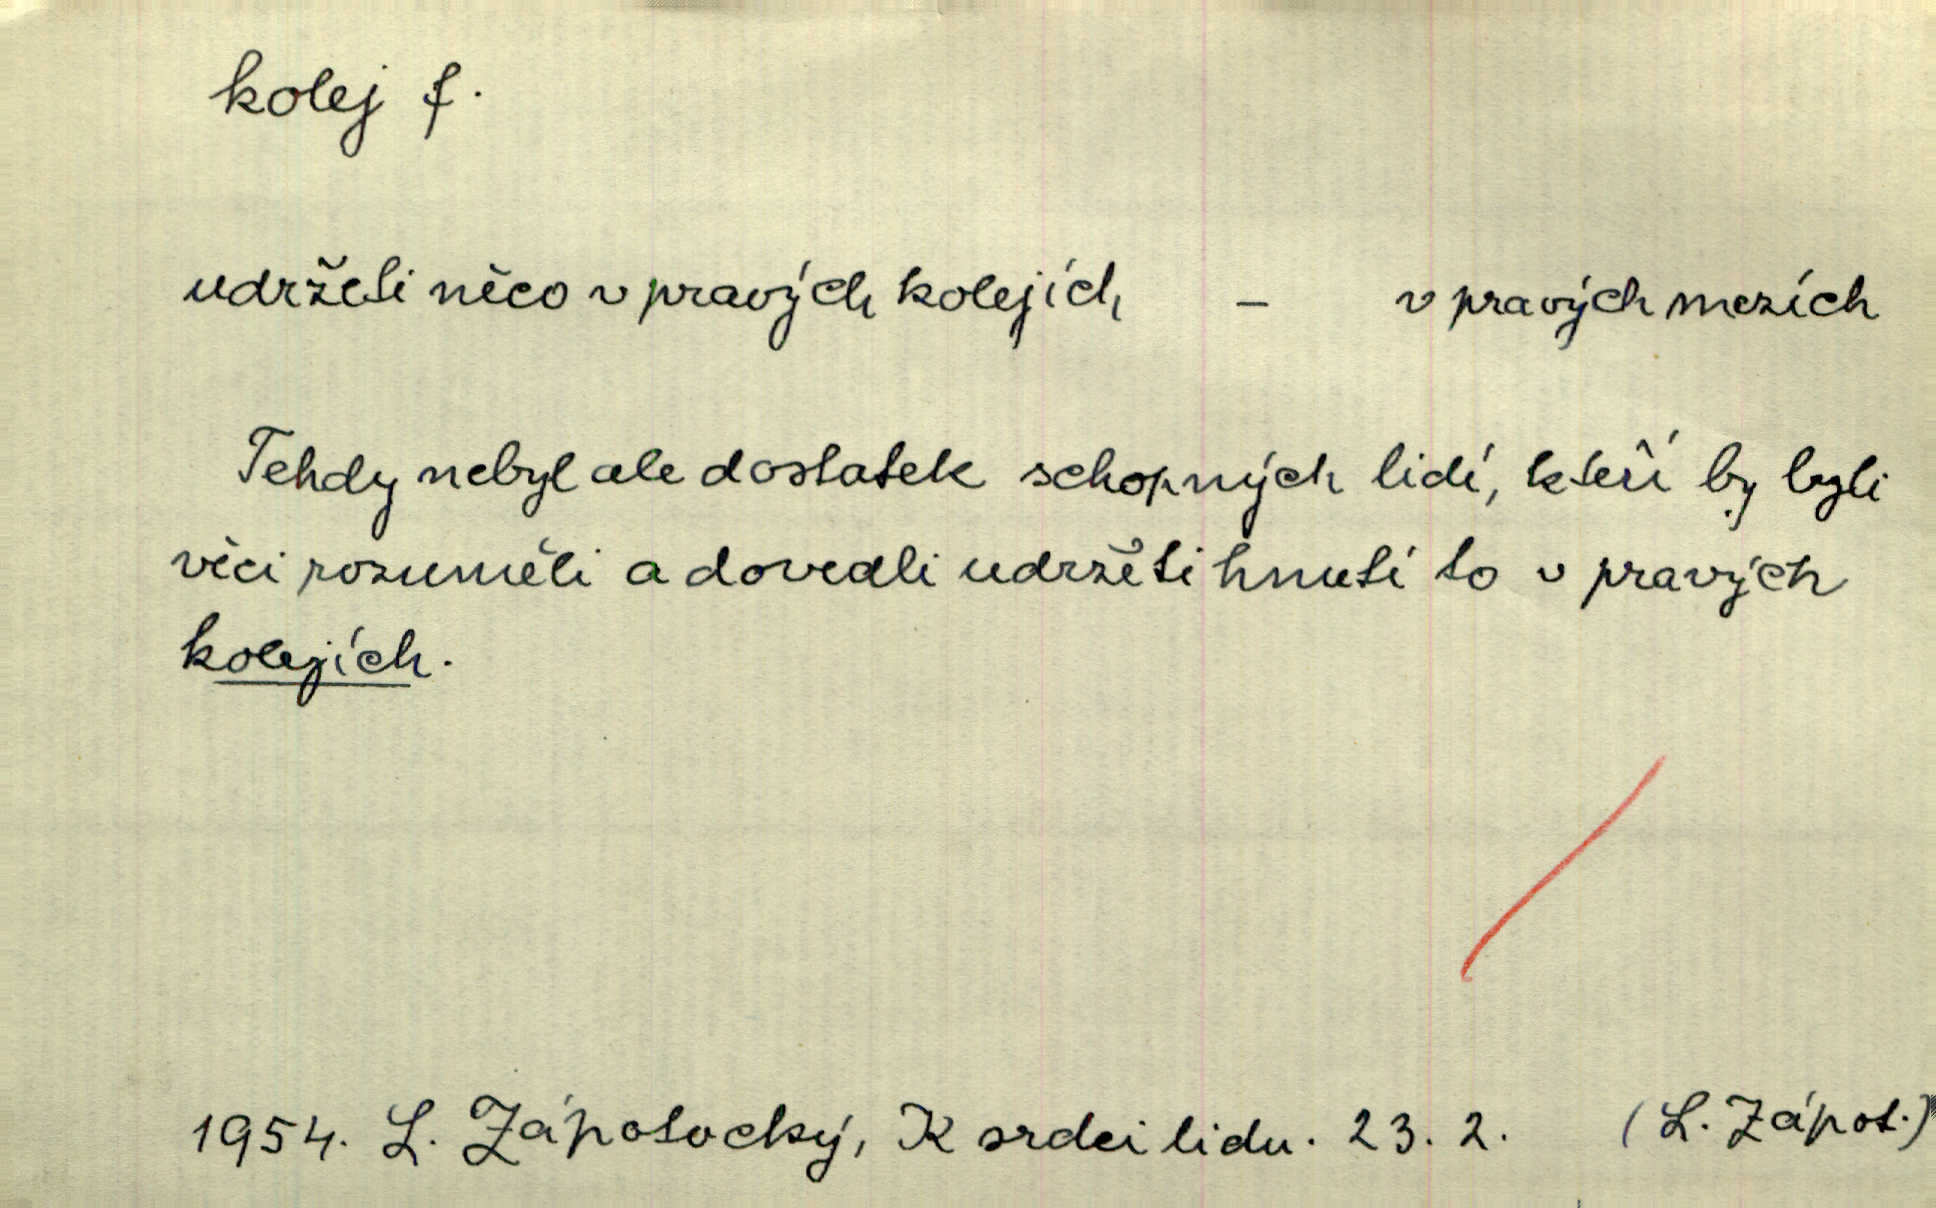 kolej f.
udržeti něco v pravých kolejích – v pravých mezích
Tehdy nebyl ale dostatek schopných lidí, kteří by byli
věci rozuměli a dovedli udržeti hnutí to v pravých
kolejích.
1954. L. Zápotocký, K srdci lidu. 23. 2. (L. Zápot.)